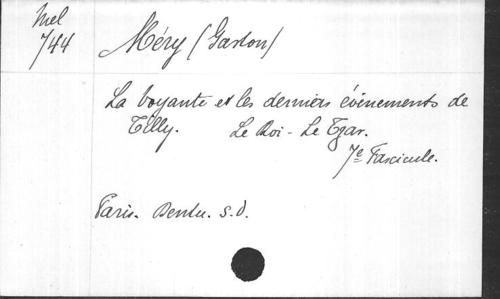 Mel
744
Méry (Gaston)
La Voyante et les derniers évènements de
Tilly. Le Roi - Le Tzar.
7e Fascicule.
Paris. Dentu. s.d.